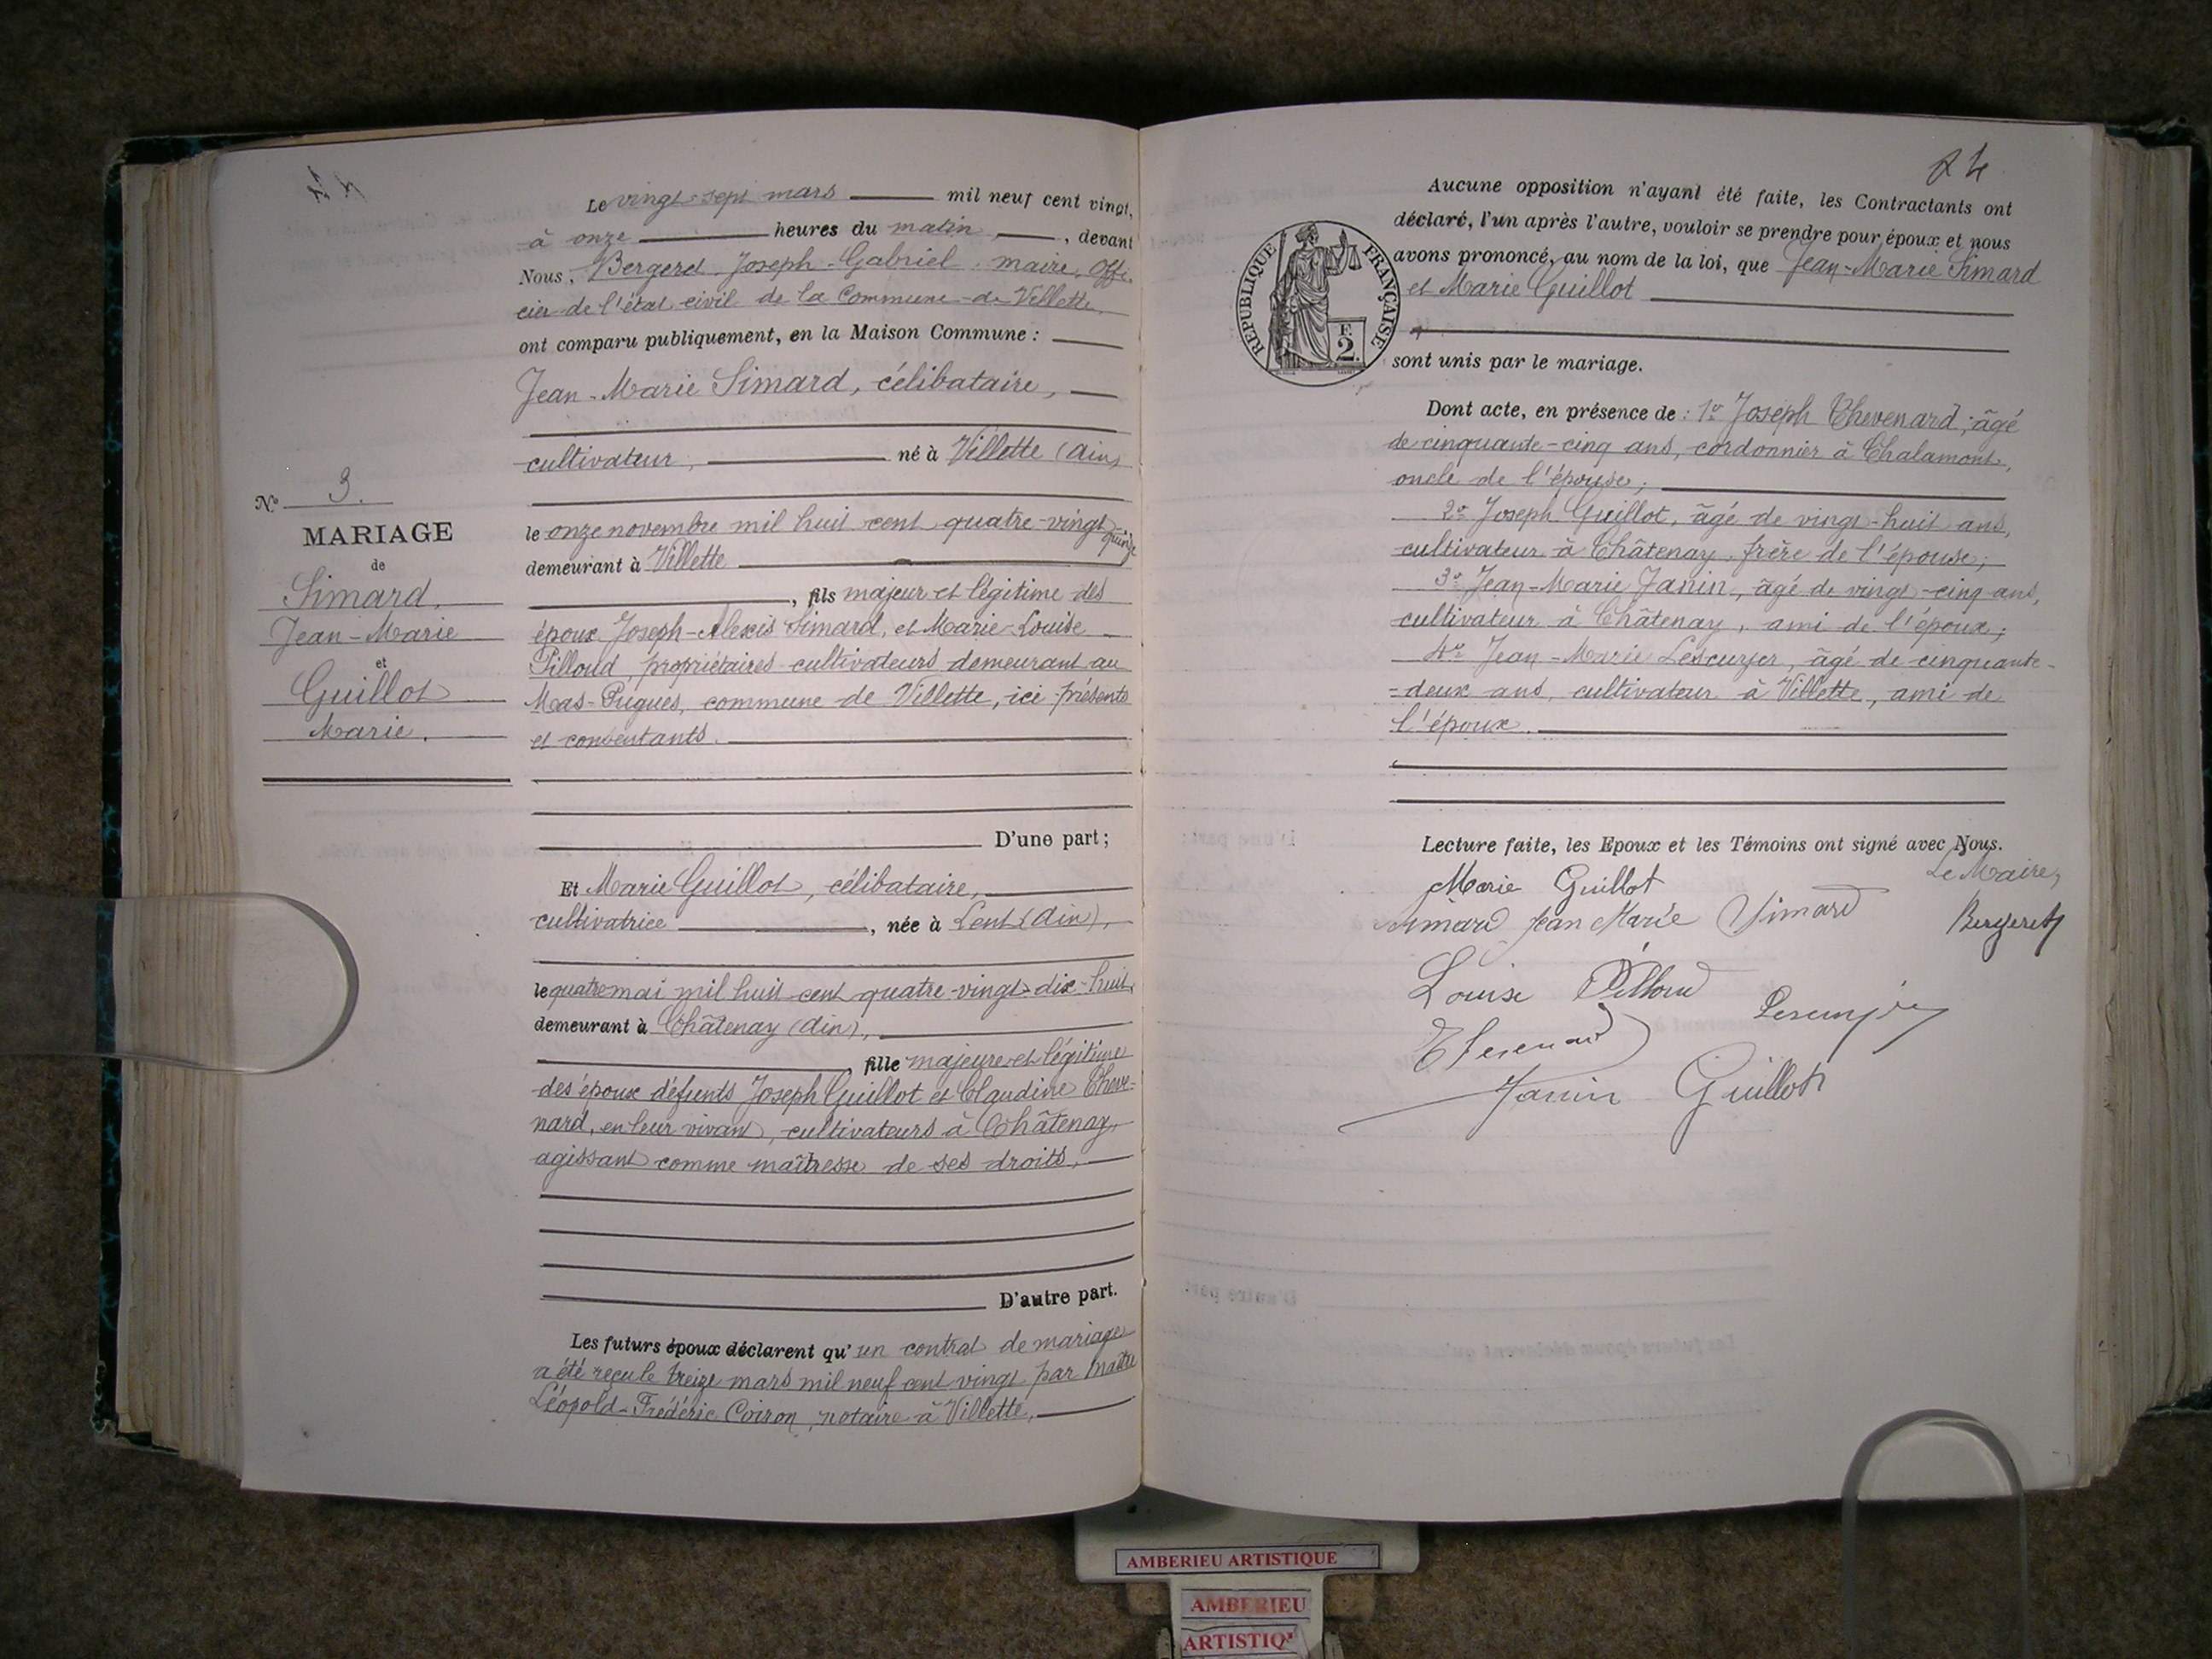 Le vingt-sept mars mil neuf cent vingt,
à onze heures du matin, devant
Nous, Bergeret, Joseph-Gabriel, maire, Offi-
cier de l'état civil de la Commune de Villette
ont comparu publiquement, en la Maison Commune :
Jean-Marie Simard, célibataire,
cultivateur, né à Villette (Ain)
le onze novembre mil huit cent quatre-vingt quinze
demeurant à Villette
, fils majeur et légitime des
époux Joseph-Alexis Simard, et Marie-Louise
Pilloud, propriétaires-cultivateurs demeurant au
Mas-Pugues, commune de Villette, ici présents
et consentants.
D'une part ;
Et Marie Guillot, célibataire,
cultivatrice, née à Lent (Ain),
le quatre mai mil huit cent quatre-vingt-dix-huit,
demeurant à Châtenay (Ain),
, fille majeure et légitime
des époux défunts Joseph Guillot et Claudine Cheve-
nard, en leur vivant, cultivateurs à Châtenay,
agissant comme maîtresse de ses droits.
D'autre part.
Les futurs époux déclarent qu'un contrat de mariage
a été reçu le treize mars mil neuf cent vingt par Maître
Léopold-Frédéric Coiron, notaire à Villette.
N° 3.
MARIAGE
de
Simard,
Jean-Marie
et
Guillot
Marie.
24
Aucune opposition n'ayant été faite, les Contractants ont
déclaré, l'un après l'autre, vouloir se prendre pour époux et nous
avons prononcé, au nom de la loi, que Jean-Marie Simard
et Marie Guillot
sont unis par le mariage.
RÉPUBLIQUE FRANÇAISE
F.
2.
Dont acte, en présence de : 1° Joseph Chevenard, âgé
de cinquante-cinq ans, cordonnier à Chalamont,
oncle de l'épouse ;
2° Joseph Guillot, âgé de vingt-huit ans,
cultivateur à Châtenay, frère de l'épouse ;
3° Jean-Marie Janin, âgé de vingt-cinq ans,
cultivateur à Châtenay, ami de l'époux ;
4° Jean-Marie Lescuyer, âgé de cinquante-
=deux ans, cultivateur à Villette, ami de
l'époux.
Lecture faite, les Epoux et les Témoins ont signé avec Nous.
Le Maire,
Marie Guillot
Simard Jean Marie Simard
Bergeret
Louise Pilloud
Lescuyer
Chevenard
Janin Guillot
AMBERIEU ARTISTIQUE
AMBERIEU
ARTISTIQ